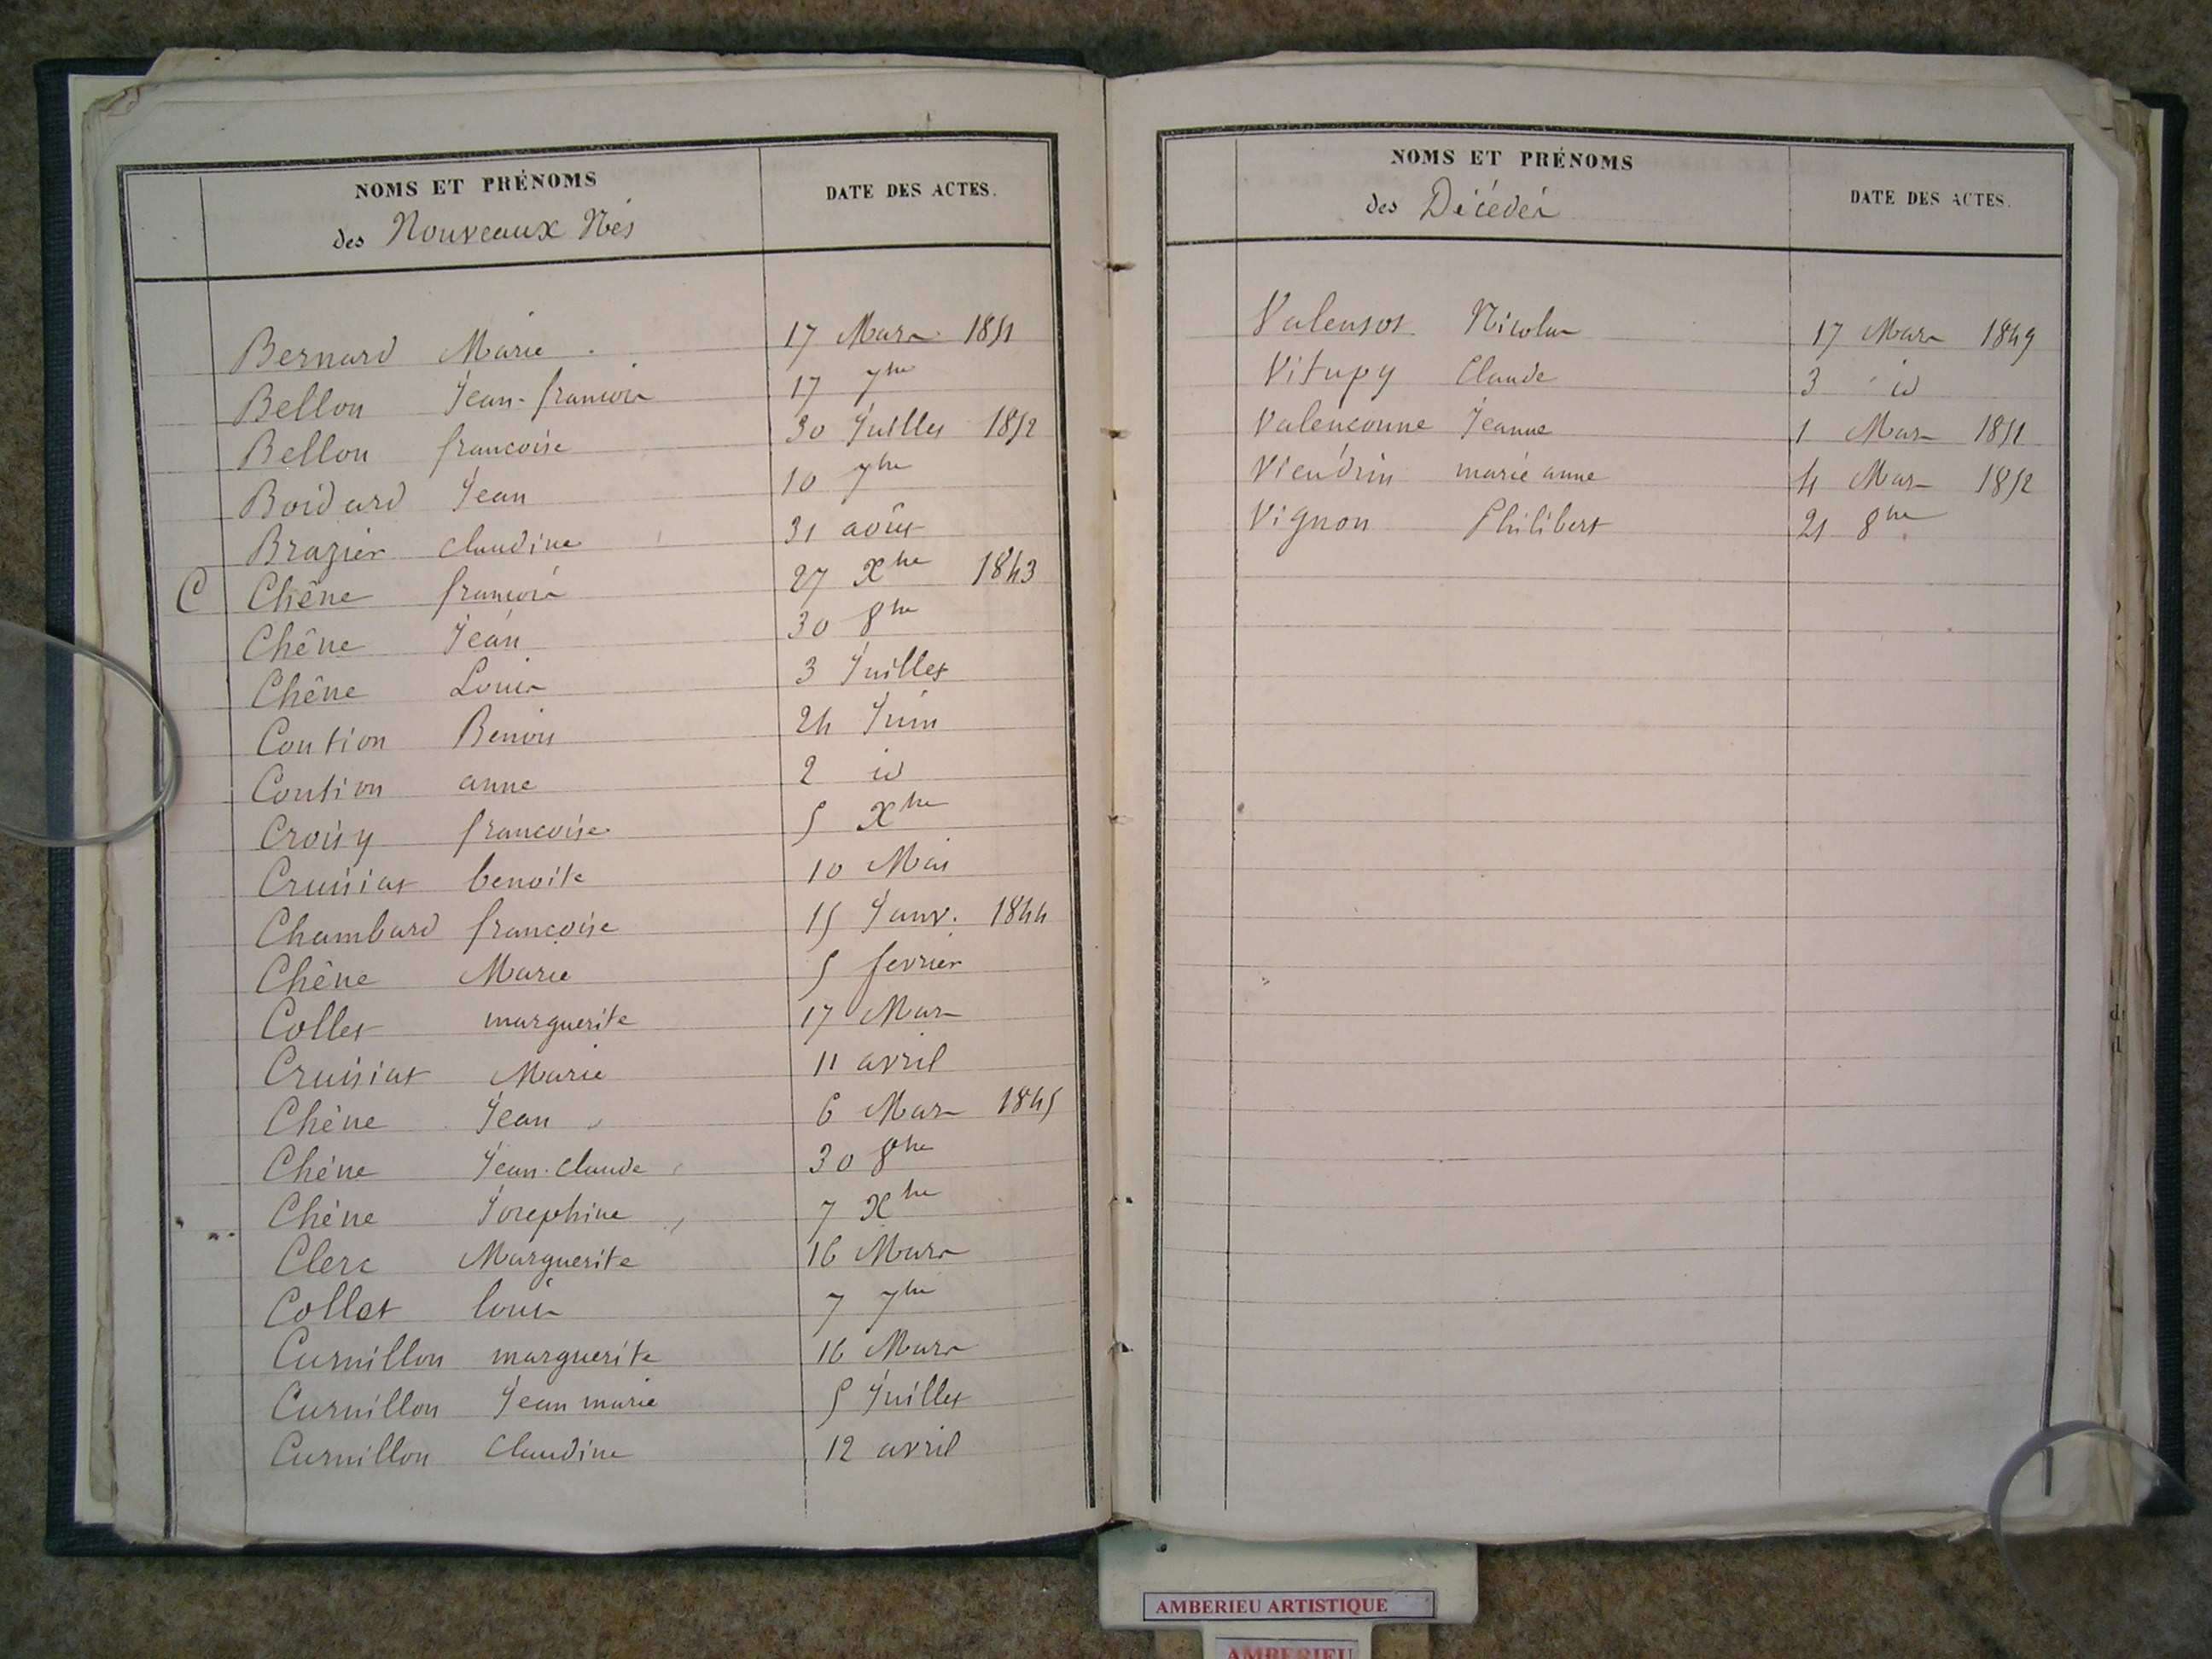 NOMS ET PRÉNOMS
des Nouveaux Nés
DATE DES ACTES.
Bernard Marie 17 Mars 1851
Bellon Jean-francois 17 7bre
Bellon francoise 30 Juillet 1852
Boidard Jean 10 7bre
Brazier claudine 31 août
C Chêne francois 27 Xbre 1843
Chêne Jean 30 8bre
Chêne Louis 3 Juillet
Contion Benoit 24 Juin
Contion anne 2 id
Croisy francoise 5 Xbre
Cruisiat benoite 10 Mai
Chambard françoise 15 Janv. 1844
Chêne Marie 5 fevrier
Collet marguerite 17 Mars
Cruisiat Marie 11 avril
Chêne Jean 6 Mars 1845
Chêne Jean-Claude 30 8bre
Chêne Josephine 7 Xbre
Clerc Marguerite 16 Mars
Collet louis 7 7bre
Curnillon marguerite 16 Mars
Curnillon Jean marie 5 Juillet
Curnillon Claudine 12 avril
NOMS ET PRÉNOMS
des Décédés
DATE DES ACTES.
Valensot Nicolas 17 Mars 1849
Vitupy Claude 3 id
Valenconne Jeanne 1 Mars 1851
Viendrin marie anne 4 Mars 1852
Vignon Philibert 21 8bre
AMBERIEU ARTISTIQUE
AMBERIEU